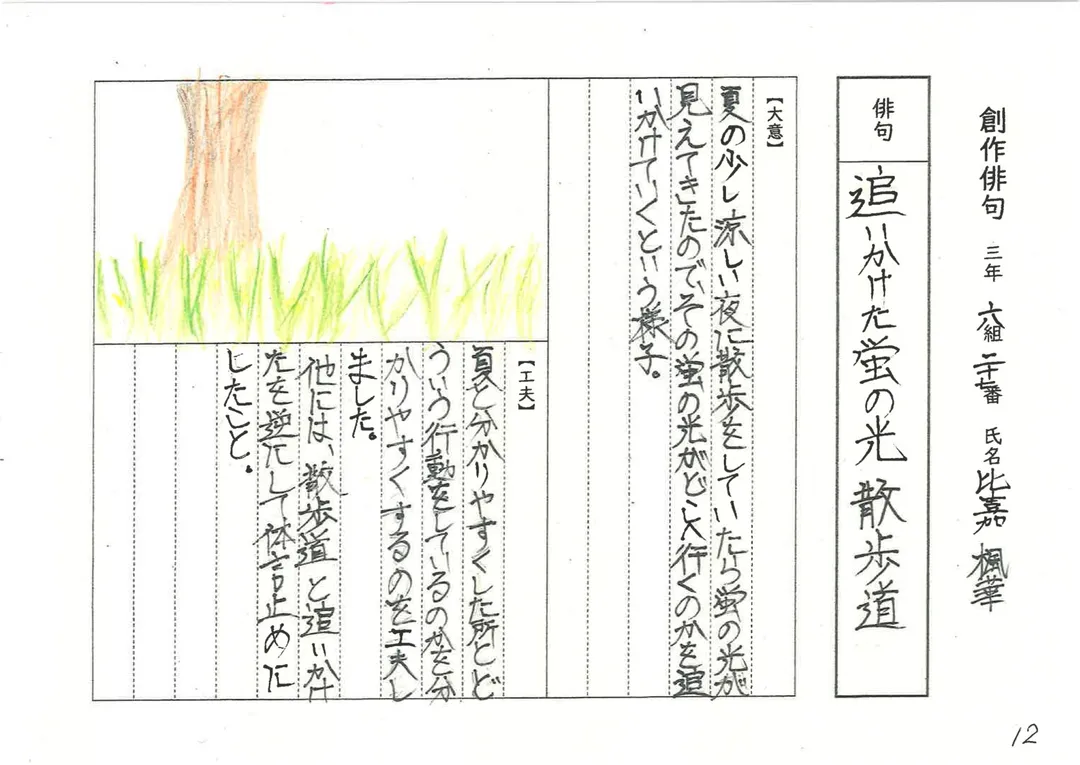 創作俳句 三年 六組 二十七番 氏名 比嘉 楓華
俳句
追いかけた蛍の光散歩道
【大意】
夏の少し涼しい夜に散歩をしていたら蛍の光が
見えてきたので、その蛍の光がどこへ行くのかを追
いかけていくという様子。
【工夫】
夏と分かりやすくした所とど
ういう行動をしているのかを分
かりやすくするのを工夫し
ました。
他には、散歩道と追いかけ
たを逆にして体言止めに
したこと。
12